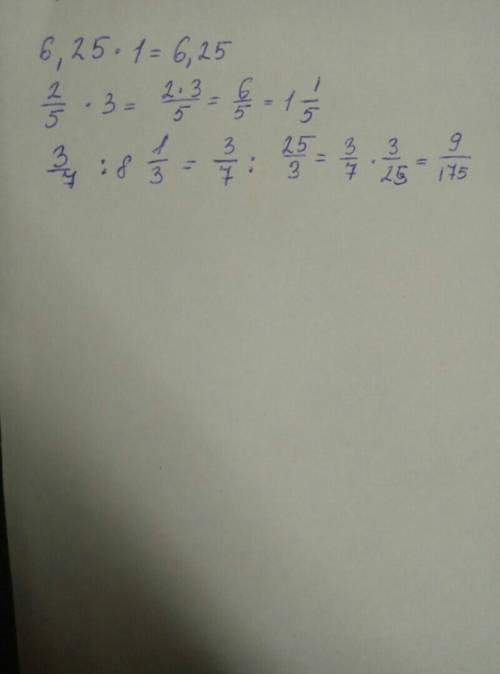 6,25 · 1 = 6,25
2/5 · 3 = 2·3/5 = 6/5 = 1 1/5
3/7 : 8 1/3 = 3/7 : 25/3 = 3/7 · 3/25 = 9/175